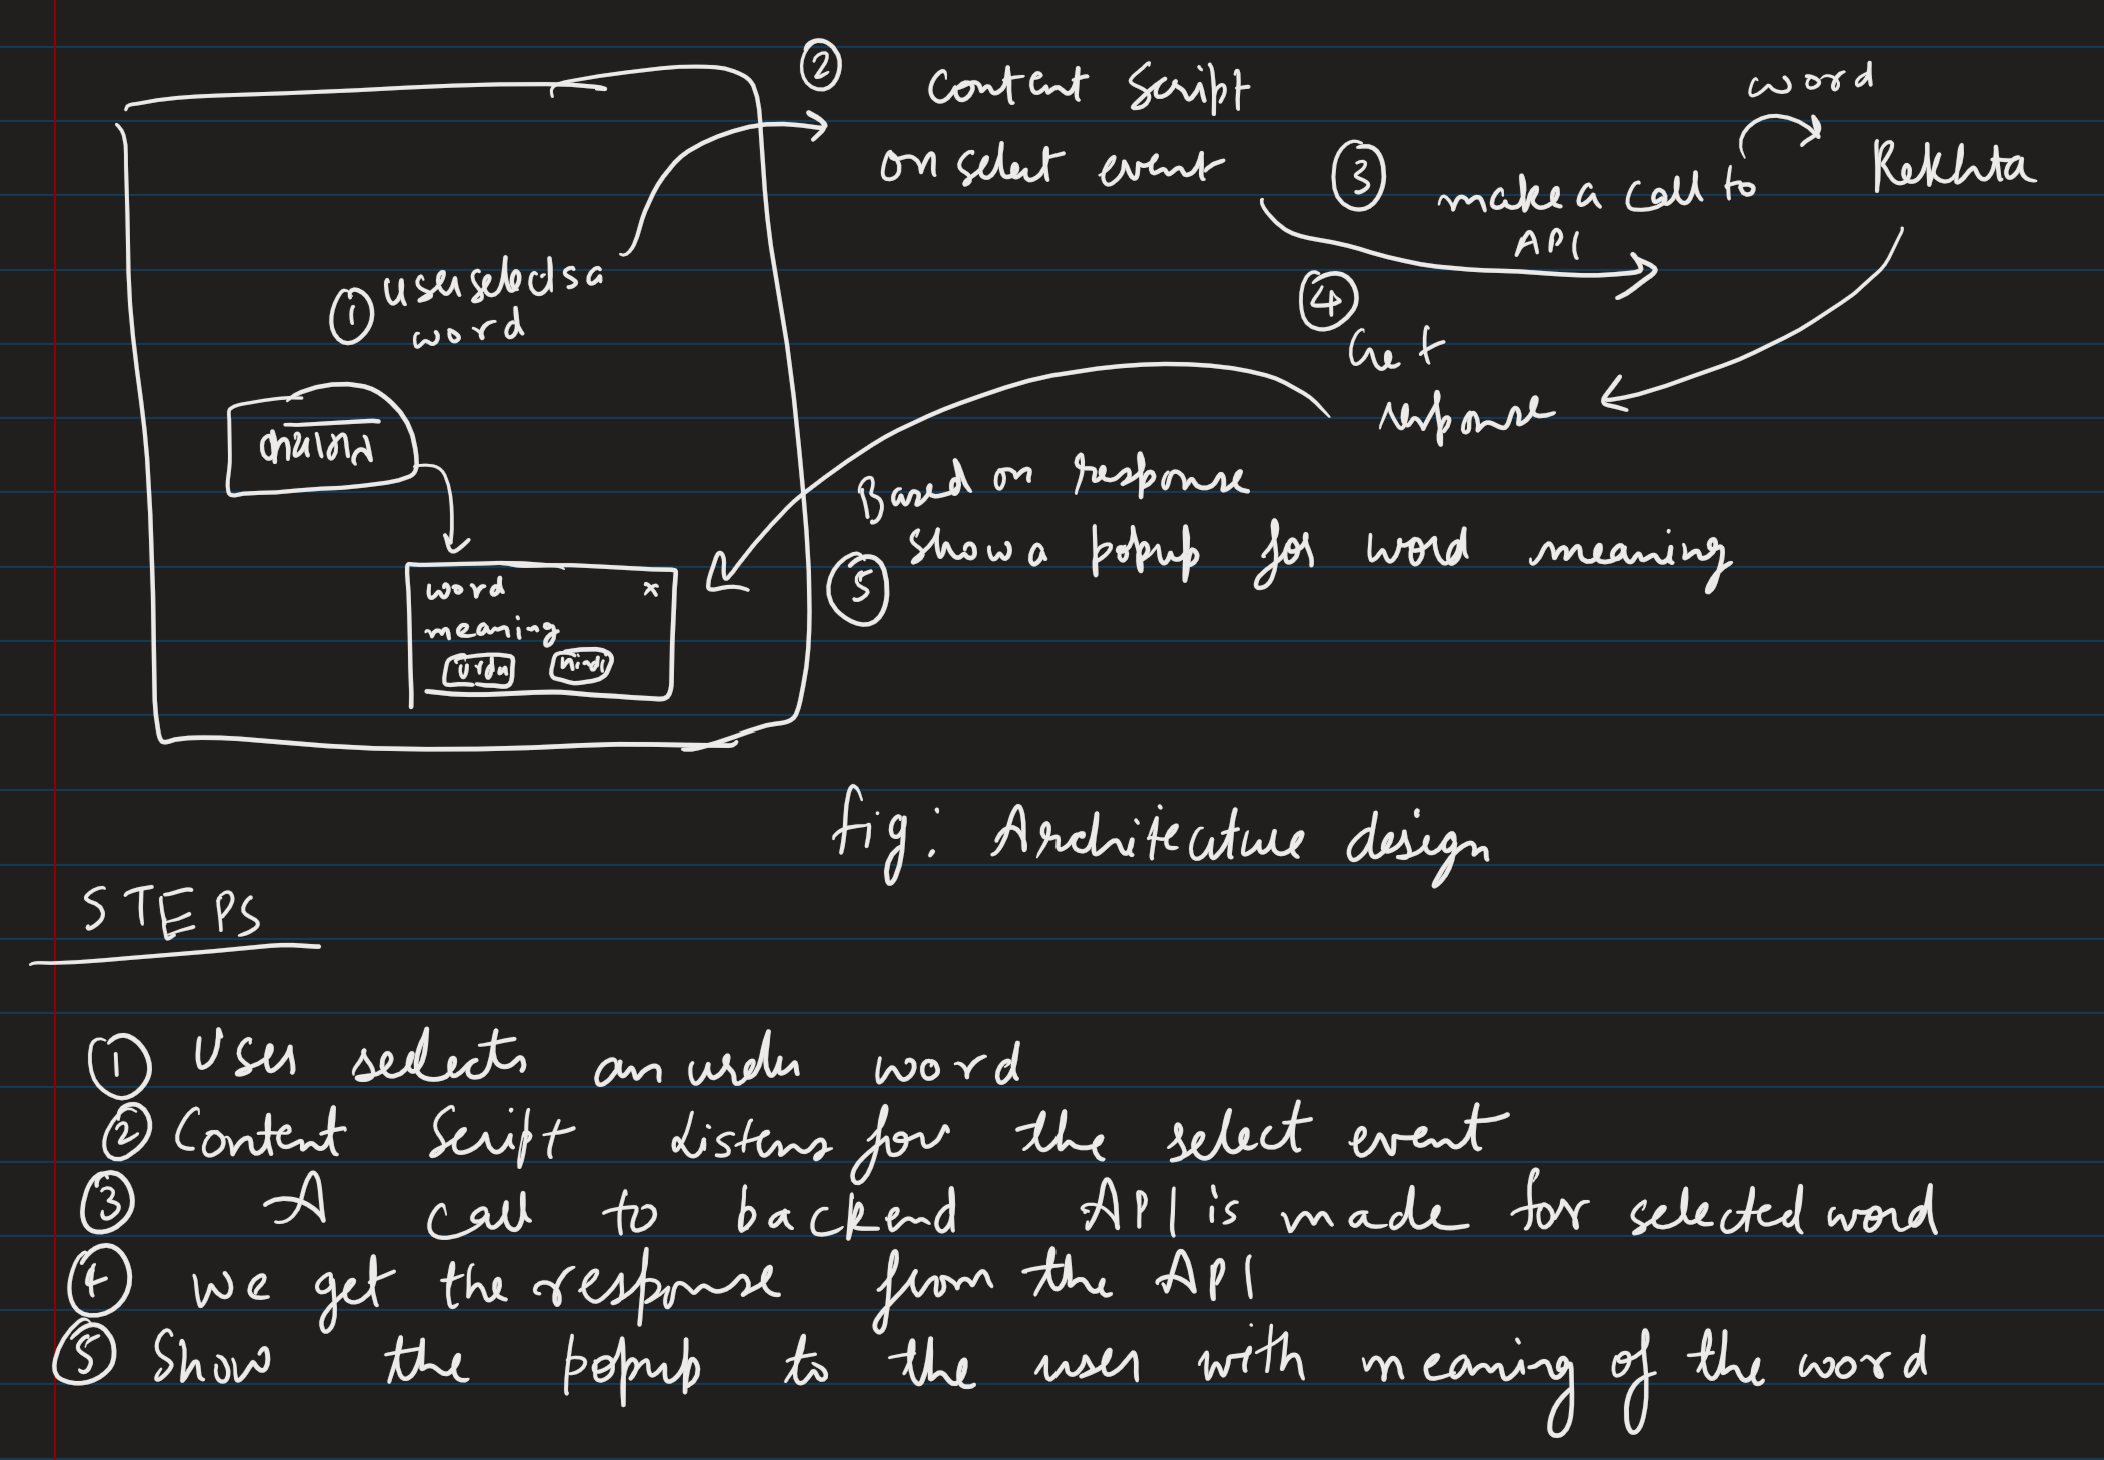 ②
Content Script
on select event
word
③
make a call to
API
Rekhta
① user selects a
word
④
Get
response
Based on response
⑤ show a popup for word meaning
word x
meaning
Urdu Hindi
fig: Architecture design
STEPS
① User selects an urdu word
② Content Script Listens for the select event
③ A call to backend API is made for selected word
④ we get the response from the API
⑤ Show the popup to the user with meaning of the word